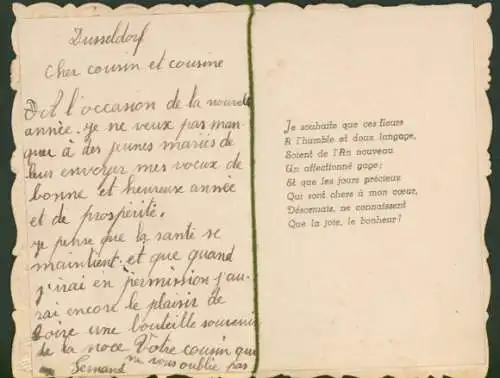 Dusseldorf
Cher cousin et cousine
A l'occasion de la nouvelle
année. je ne veux pas man-
quer à des jeunes mariés de
leur envoyer mes voeux de
bonne et heureuse année
et de prospérité.
je pense que la santé se
maintient. et que quand
j'irai en permission j'au-
rai encore le plaisir de
boire une bouteille souvenir
de la noce Votre cousin qui
ne vous oublie pas
Je souhaite que ces fleurs
A l'humble et doux langage,
Soient de l'An nouveau
Un affectionné gage;
Et que les jours précieux
Qui sont chers à mon cœur,
Désormais, ne connaissent
Que la joie, le bonheur!